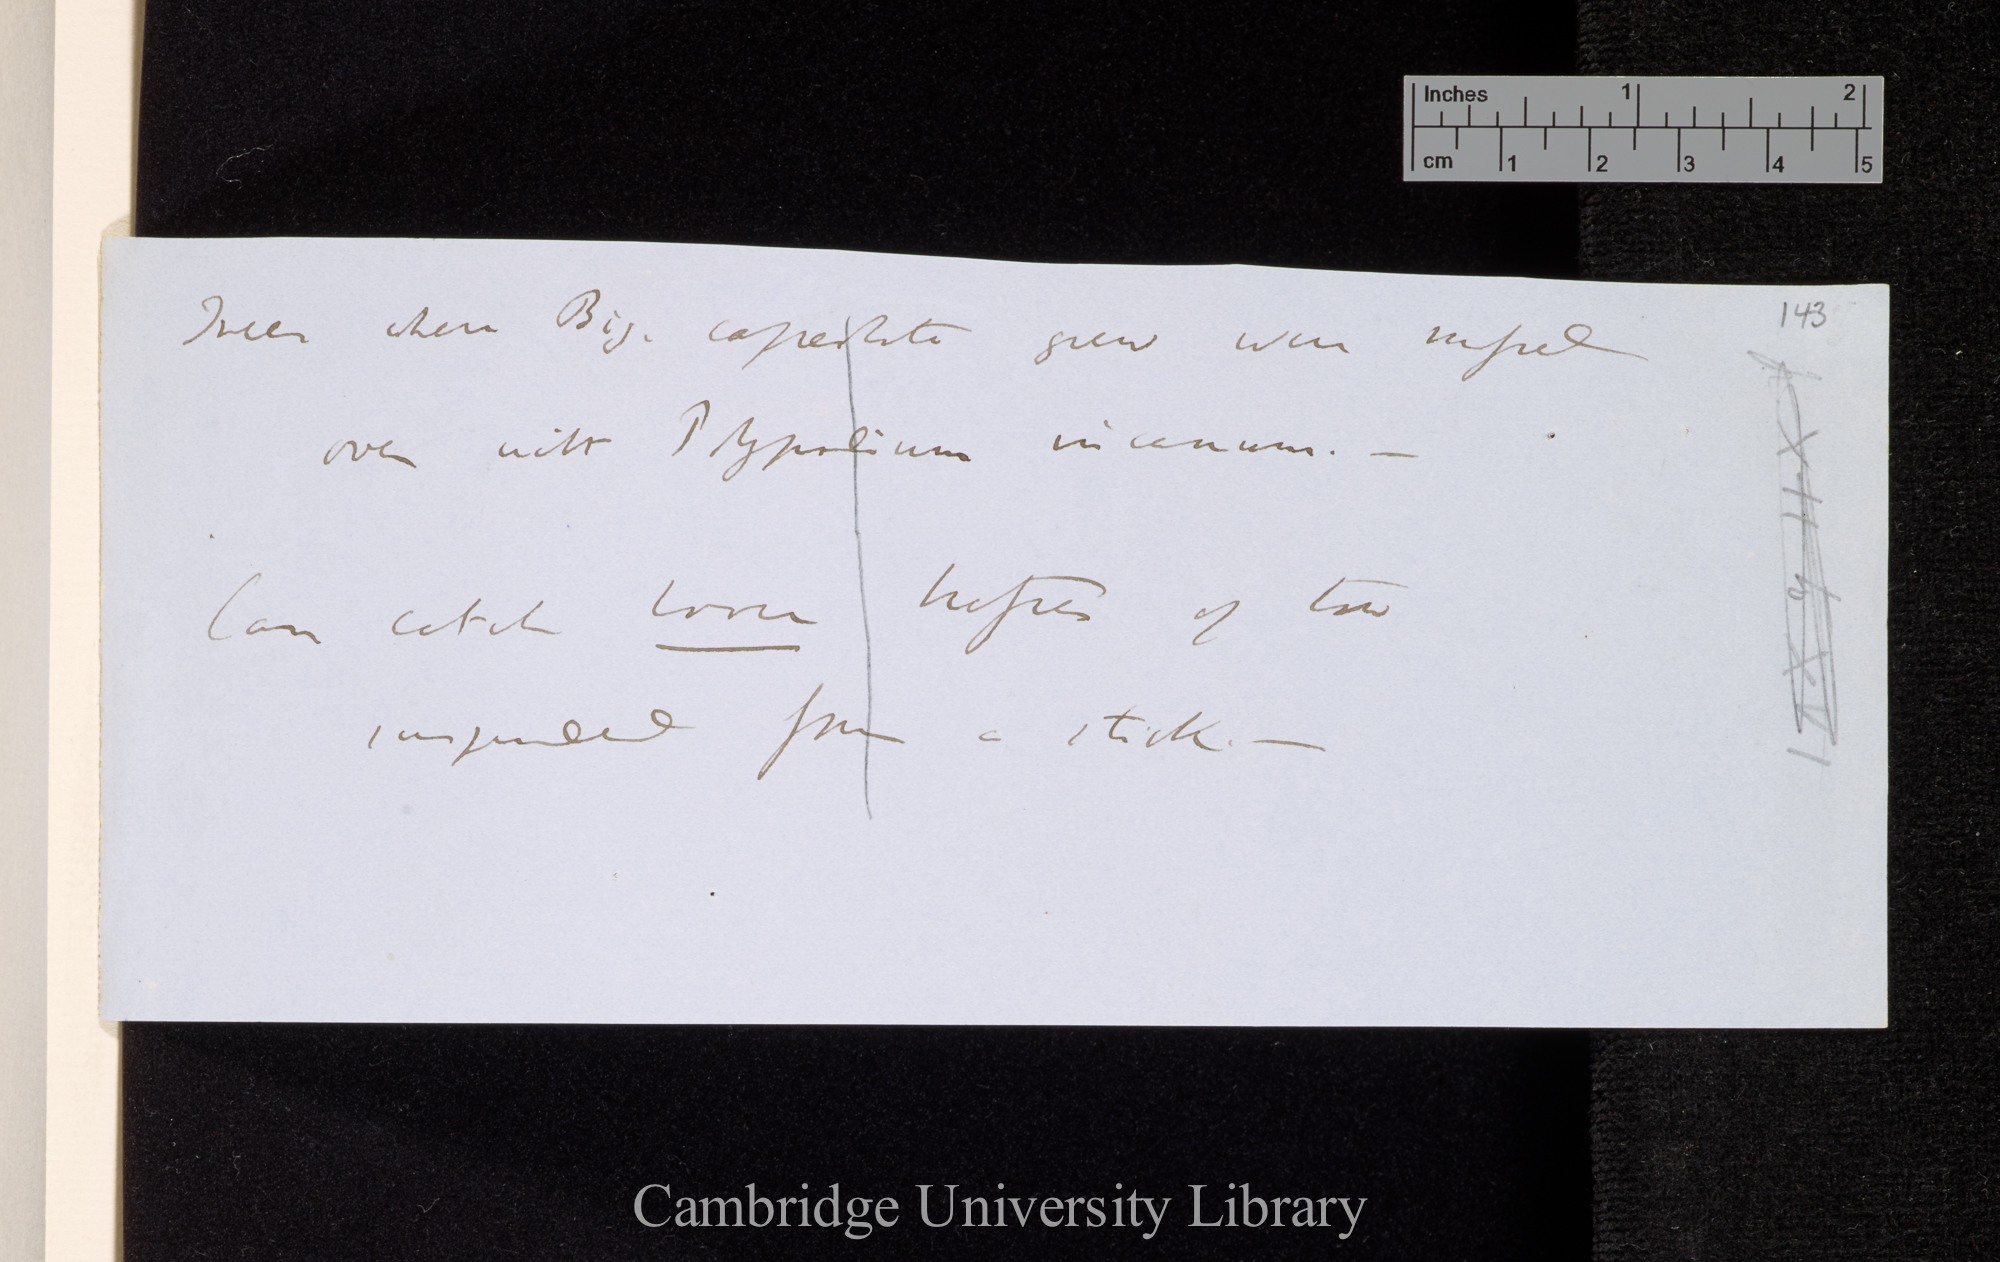 Inches 1 2
cm 1 2 3 4 5
143
Trees where Big. capreolata grew were
over with Polypodium incanum. —
Can catch loose of tow
suspended from a stick. —
Cambridge University Library